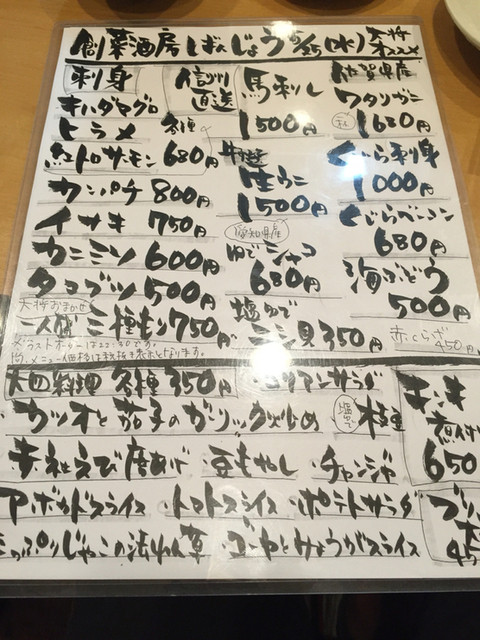 創菜酒房 ばんじょう 5/25(水) 大将オススメ
刺身
キハダマグロ
ヒラメ 各種
紅トロサーモン 680円
カンパチ 800円
イサキ 750円
カニミソ 600円
タコブツ 500円
大将おまかせ
一人盛 三種もり 750円
※ラストオーダーは22:30です。
尚、メニュー価格は税抜き表示となります。
信州直送
馬刺し
1500円
生ウニ
1500円
愛知県産
ゆでシャコ
680円
塩ゆで
ニシ貝 350円
佐賀県産
ワタリガニ
1680円
くじら刺身
1000円
くじらベーコン
680円
海ぶどう
500円
赤くらげ 450円
大皿料理 各種 350円
・カツオと茄子のガーリック炒め
・塩ゆで 枝豆
・赤ねえび唐あげ
・豆もやし
・チャンジャ
アボカドスライス
・トマトスライス
・ポテトサラダ
っぷりじゃこの法れん草
・ゴーヤとみょうがスライス
煮付
650
ブリ